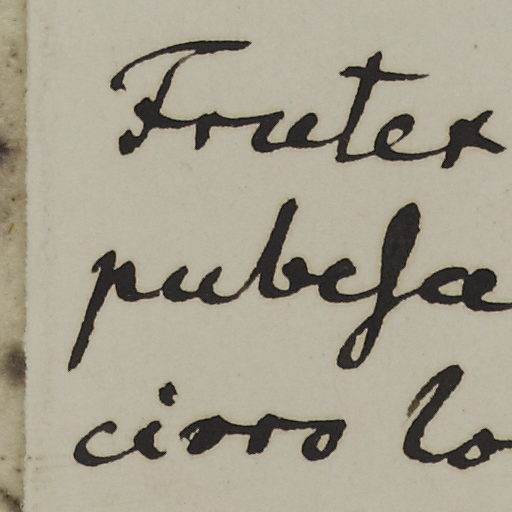 Frutex
pubesce
cirro lo